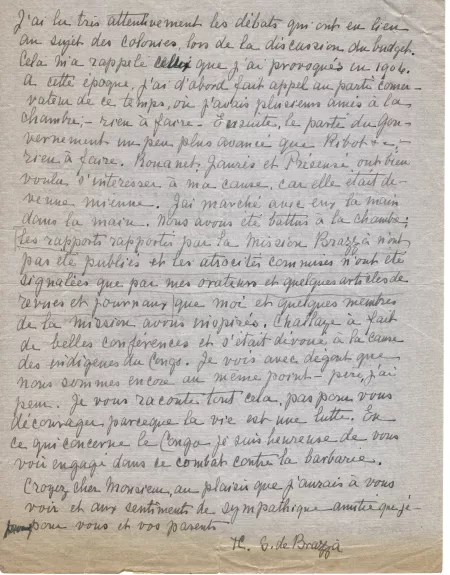 J'ai lu très attentivement les débats qui ont eu lieu
au sujet des colonies, lors de la discussion du budget.
Cela m'a rappelé ceux que j'ai provoqués en 1906.
A cette époque, j'ai d'abord fait appel au parti conser-
vateur de ce temps, où j'avais plusieurs amis à la
chambre, - rien à faire - Ensuite, le parti du gou-
vernement un peu plus avancé que Ribot
rien à faire. Rouanet, Jaurès et Présensé ont bien
voulu s'intéresser à ma cause, car elle était de-
venue mienne. J'ai marché avec eux la main
dans la main. Nous avons été battus à la chambre;
Les rapports rapportés par la Mission Brazzà n'ont
pas été publiés et les atrocités commises n'ont été
signalées que par mes orateurs et quelques articles de
revues et journaux que moi et quelques membres
de la mission avons inspirés. Challaye à fait
de belles conférences et s'était dévoué à la cause
des indigènes du Congo. Je vois avec dégoût que
nous sommes encore au même point - pire, j'ai
peur. Je vous raconte tout cela, pas pour vous
décourager, parceque la vie est une lutte. En
ce qui concerne le Congo je suis heureuse de vous
voir engagé dans ce combat contre la barbarie.
Croyez cher Monsieur, au plaisir que j'aurais à vous
voir et aux sentiments de sympathique amitié que j'é-
pour vous et vos parents
de Brazzà